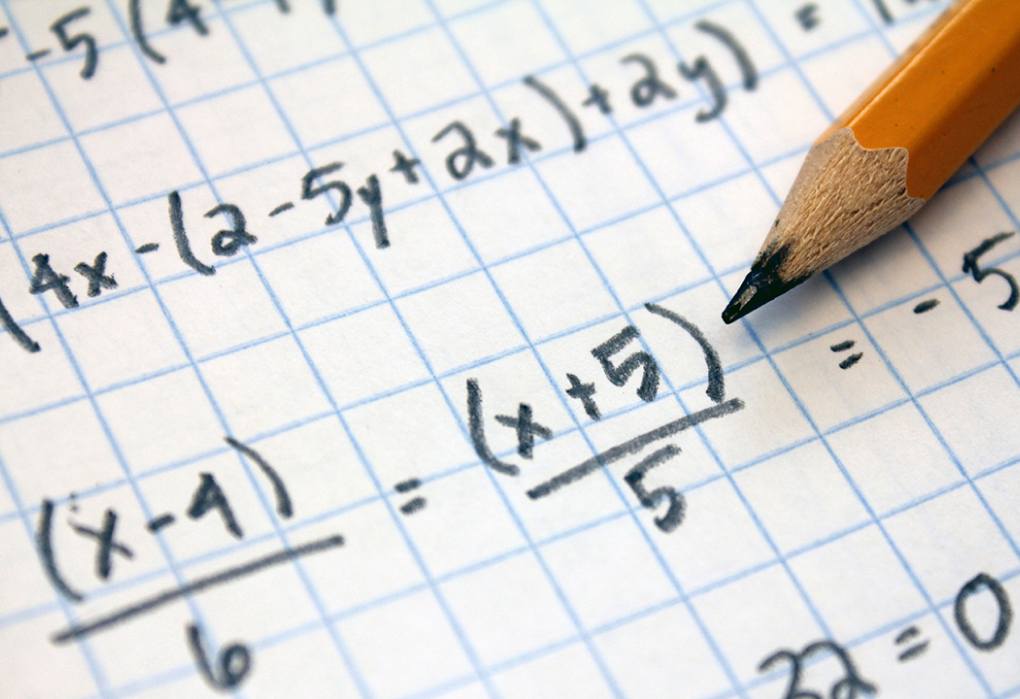 -5(4
(4x-(2-5y+2x)+2y) =
(x-4)/6 = (x+5)/5 = -5
32=0